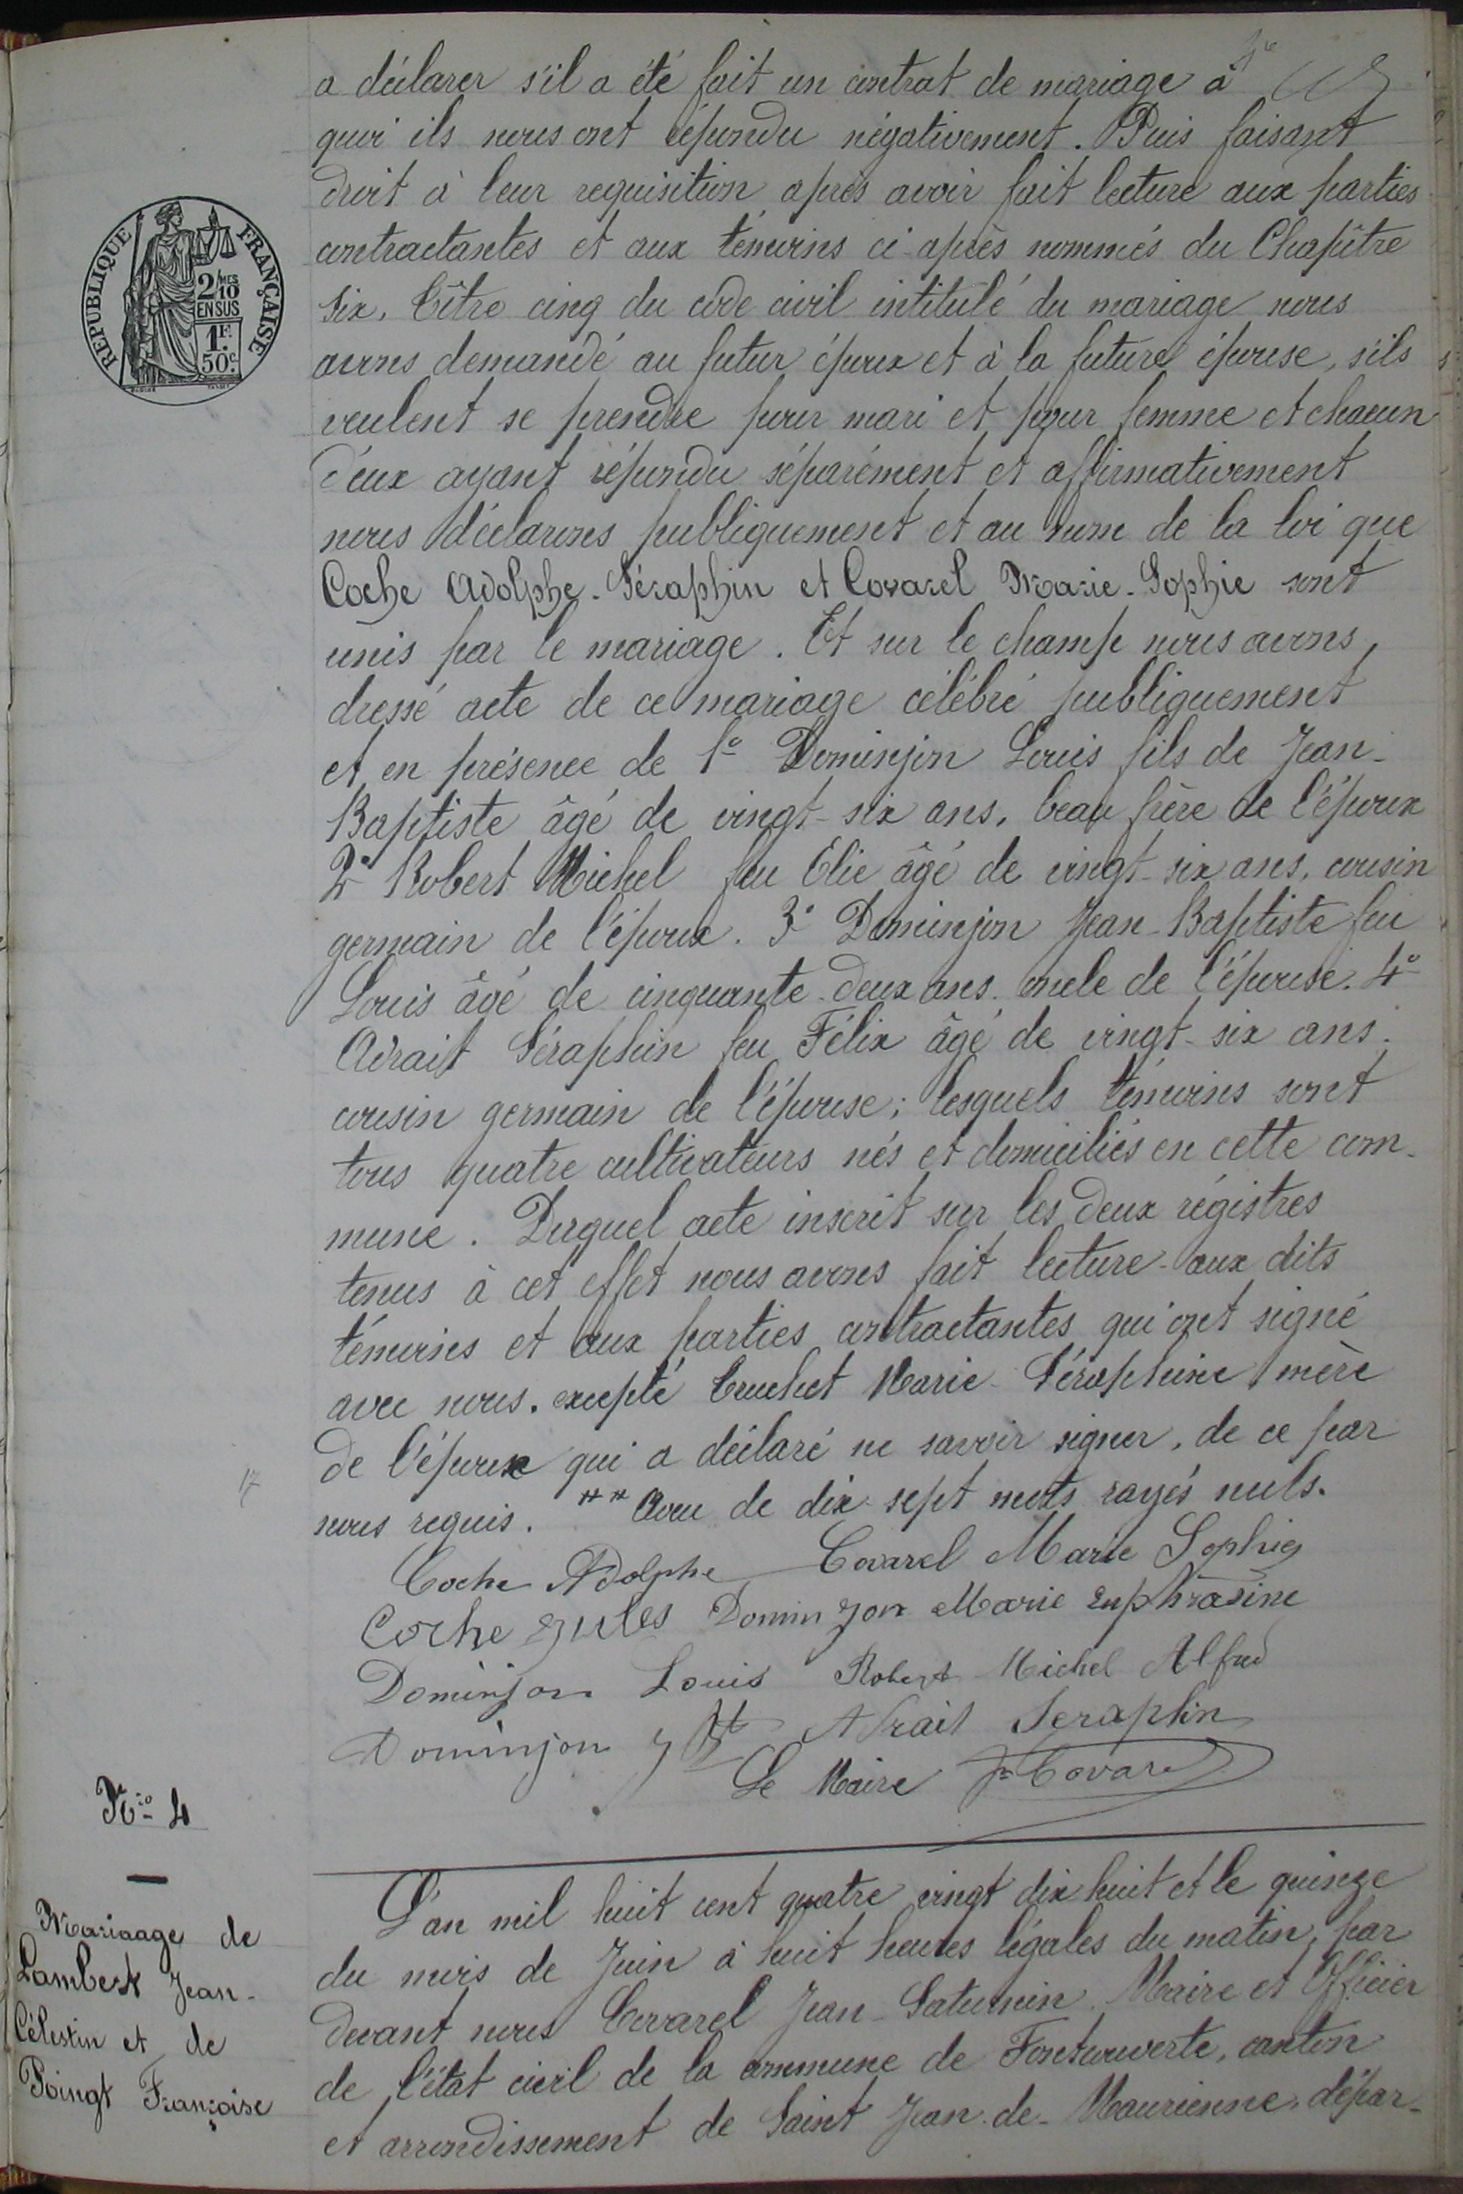 a déclarer s'il a été fait un contrat de mariage à
quoi ils nous ont répondu négativement. Puis faisant
droit à leur requisition après avoir fait lecture aux parties
contractantes et aux témoins ci-après nommés du Chapître
six, titre cinq du code civil intitulé du mariage nous
avons demandé au futur époux et à la future épouse, s'ils
veulent se prendre pour mari et pour femme et chacun
d'eux ayant répondu séparément et affirmativement
nous déclarons publiquement et au nom de la loi que
Coche Adolphe-Séraphin et Covarel Marie-Sophie sont
unis par le mariage. Et sur le champ nous avons
dressé acte de ce mariage célébré publiquement
et en présence de 1º Dominjon Louis fils de Jean-
Baptiste âgé de vingt-six ans, beau frère de l'époux
2º Robert Michel feu Elie âgé de vingt-six ans, cousin
germain de l'époux. 3º Dominjon Jean-Baptiste feu
Louis âgé de cinquante-deux ans oncle de l'épouse. 4º
Adrait Séraphin feu Félix âgé de vingt-six ans,
cousin germain de l'épouse; lesquels témoins sont
tous quatre cultivateurs nés et domiciliés en cette com-
mune. Duquel acte inscrit sur les deux régistres
tenus à cet effet nous avons fait lecture aux dits
témoins et aux parties contractantes qui ont signé
avec nous, excepté Truchet Marie-Séraphine mère
de l'époux qui a déclaré ne savoir signer, de ce par
17
nous requis. ** Avec de dix-sept mots rayés nuls.
Coche Adolphe Covarel Marie Sophie
Coche Jules Dominjon Marie Euphrasine
Dominjon Louis Robert Michel Alfred
Dominjon J Bt Adrait Seraphin
Le Maire J. Covarel
REPUBLIQUE FRANÇAISE
2/10 MES
EN SUS
1F.
50c.
Nro 4
Mariaage de
Lambert Jean-
Célestin et de
Poingt Françoise
L'an mil huit cent quatre vingt dix huit et le quinze
du mois de Juin à huit heures légales du matin, par
devant nous Covarel Jean-Saturnin Maire et Officier
de l'état civil de la commune de Fontcouverte, canton
et arrondissement de Saint Jean-de-Maurienne, dépar-